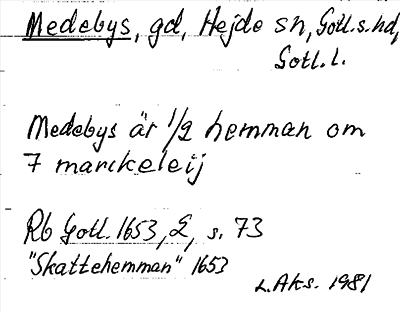 Medebys, gd, Hejde sn, Gotl. s. hd,
Gotl. l.
Medebys är 1/2 hemman om
7 marckeleij
Rb Gotl. 1653, 2, s. 73
"Skattehemman" 1653
L. Aks. 1981